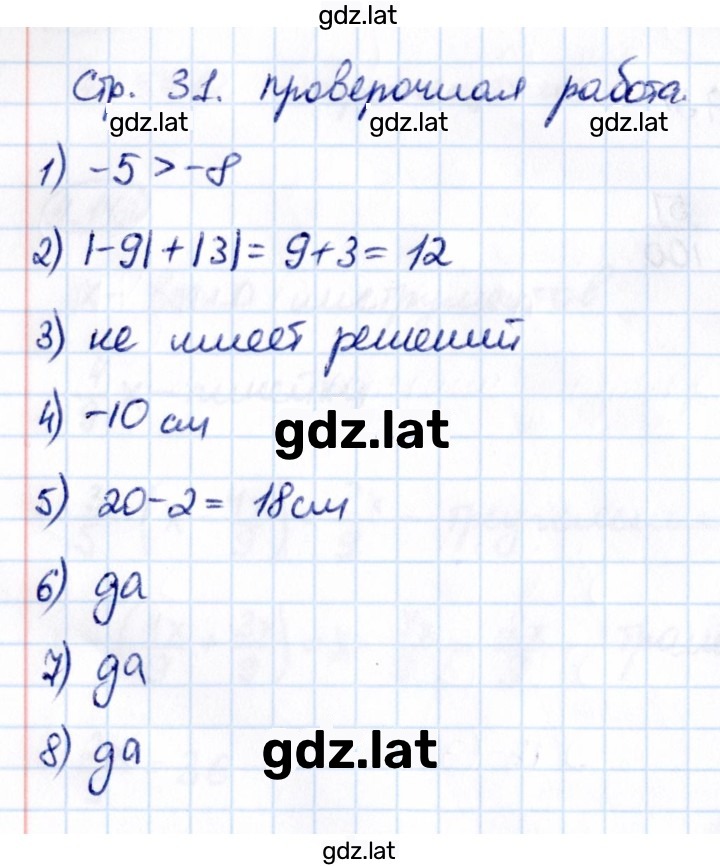 gdz.lat
Стр. 31. проверочная работа.
gdz.lat gdz.lat gdz.lat
1) -5 > -8
2) |-9| + |3| = 9+3 = 12
3) не имеет решений
4) -10 см
gdz.lat
5) 20-2 = 18см
6) да
7) да
8) да
gdz.lat
gdz.lat